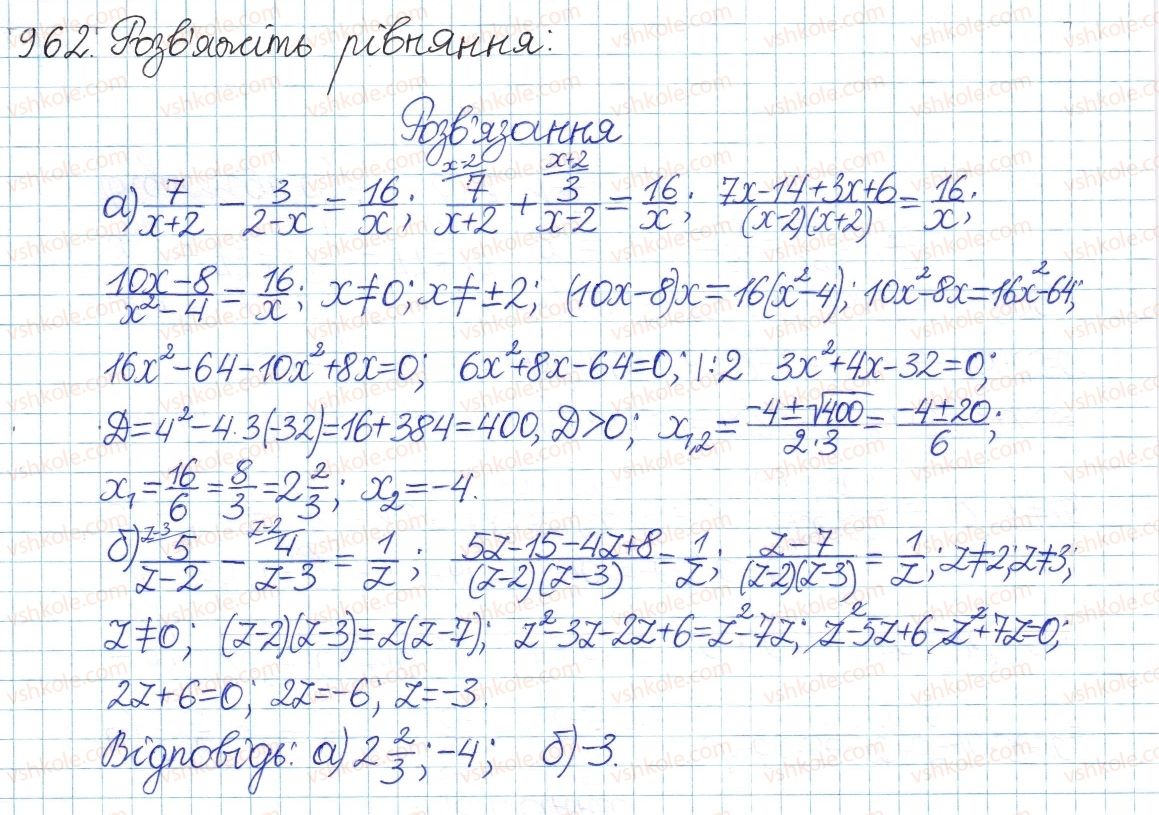 962. Розв'яжіть рівняння:
Розв'язання
а) 7/(x+2) − 3/(2−x) = 16/x; (x−2) 7/(x+2) + (x+2) 3/(x−2) = 16/x; (7x−14+3x+6)/((x−2)(x+2)) = 16/x;
(10x−8)/(x²−4) = 16/x; x≠0; x≠±2; (10x−8)x=16(x²−4); 10x²−8x=16x²−64;
16x²−64−10x²+8x=0; 6x²+8x−64=0; |:2 3x²+4x−32=0;
Д=4²−4·3(−32)=16+384=400, Д>0; x₁,₂ = (−4±√400)/(2·3) = (−4±20)/6;
x₁ = 16/6 = 8/3 = 2 2/3; x₂ = −4.
б) (z−3) 5/(z−2) − (z−2) 4/(z−3) = 1/z; (5z−15−4z+8)/((z−2)(z−3)) = 1/z; (z−7)/((z−2)(z−3)) = 1/z; z≠2; z≠3;
z≠0; (z−2)(z−3)=z(z−7); z²−3z−2z+6=z²−7z; z²−5z+6−z²+7z=0;
2z+6=0; 2z=−6; z=−3.
Відповідь: а) 2 2/3; −4; б) −3.